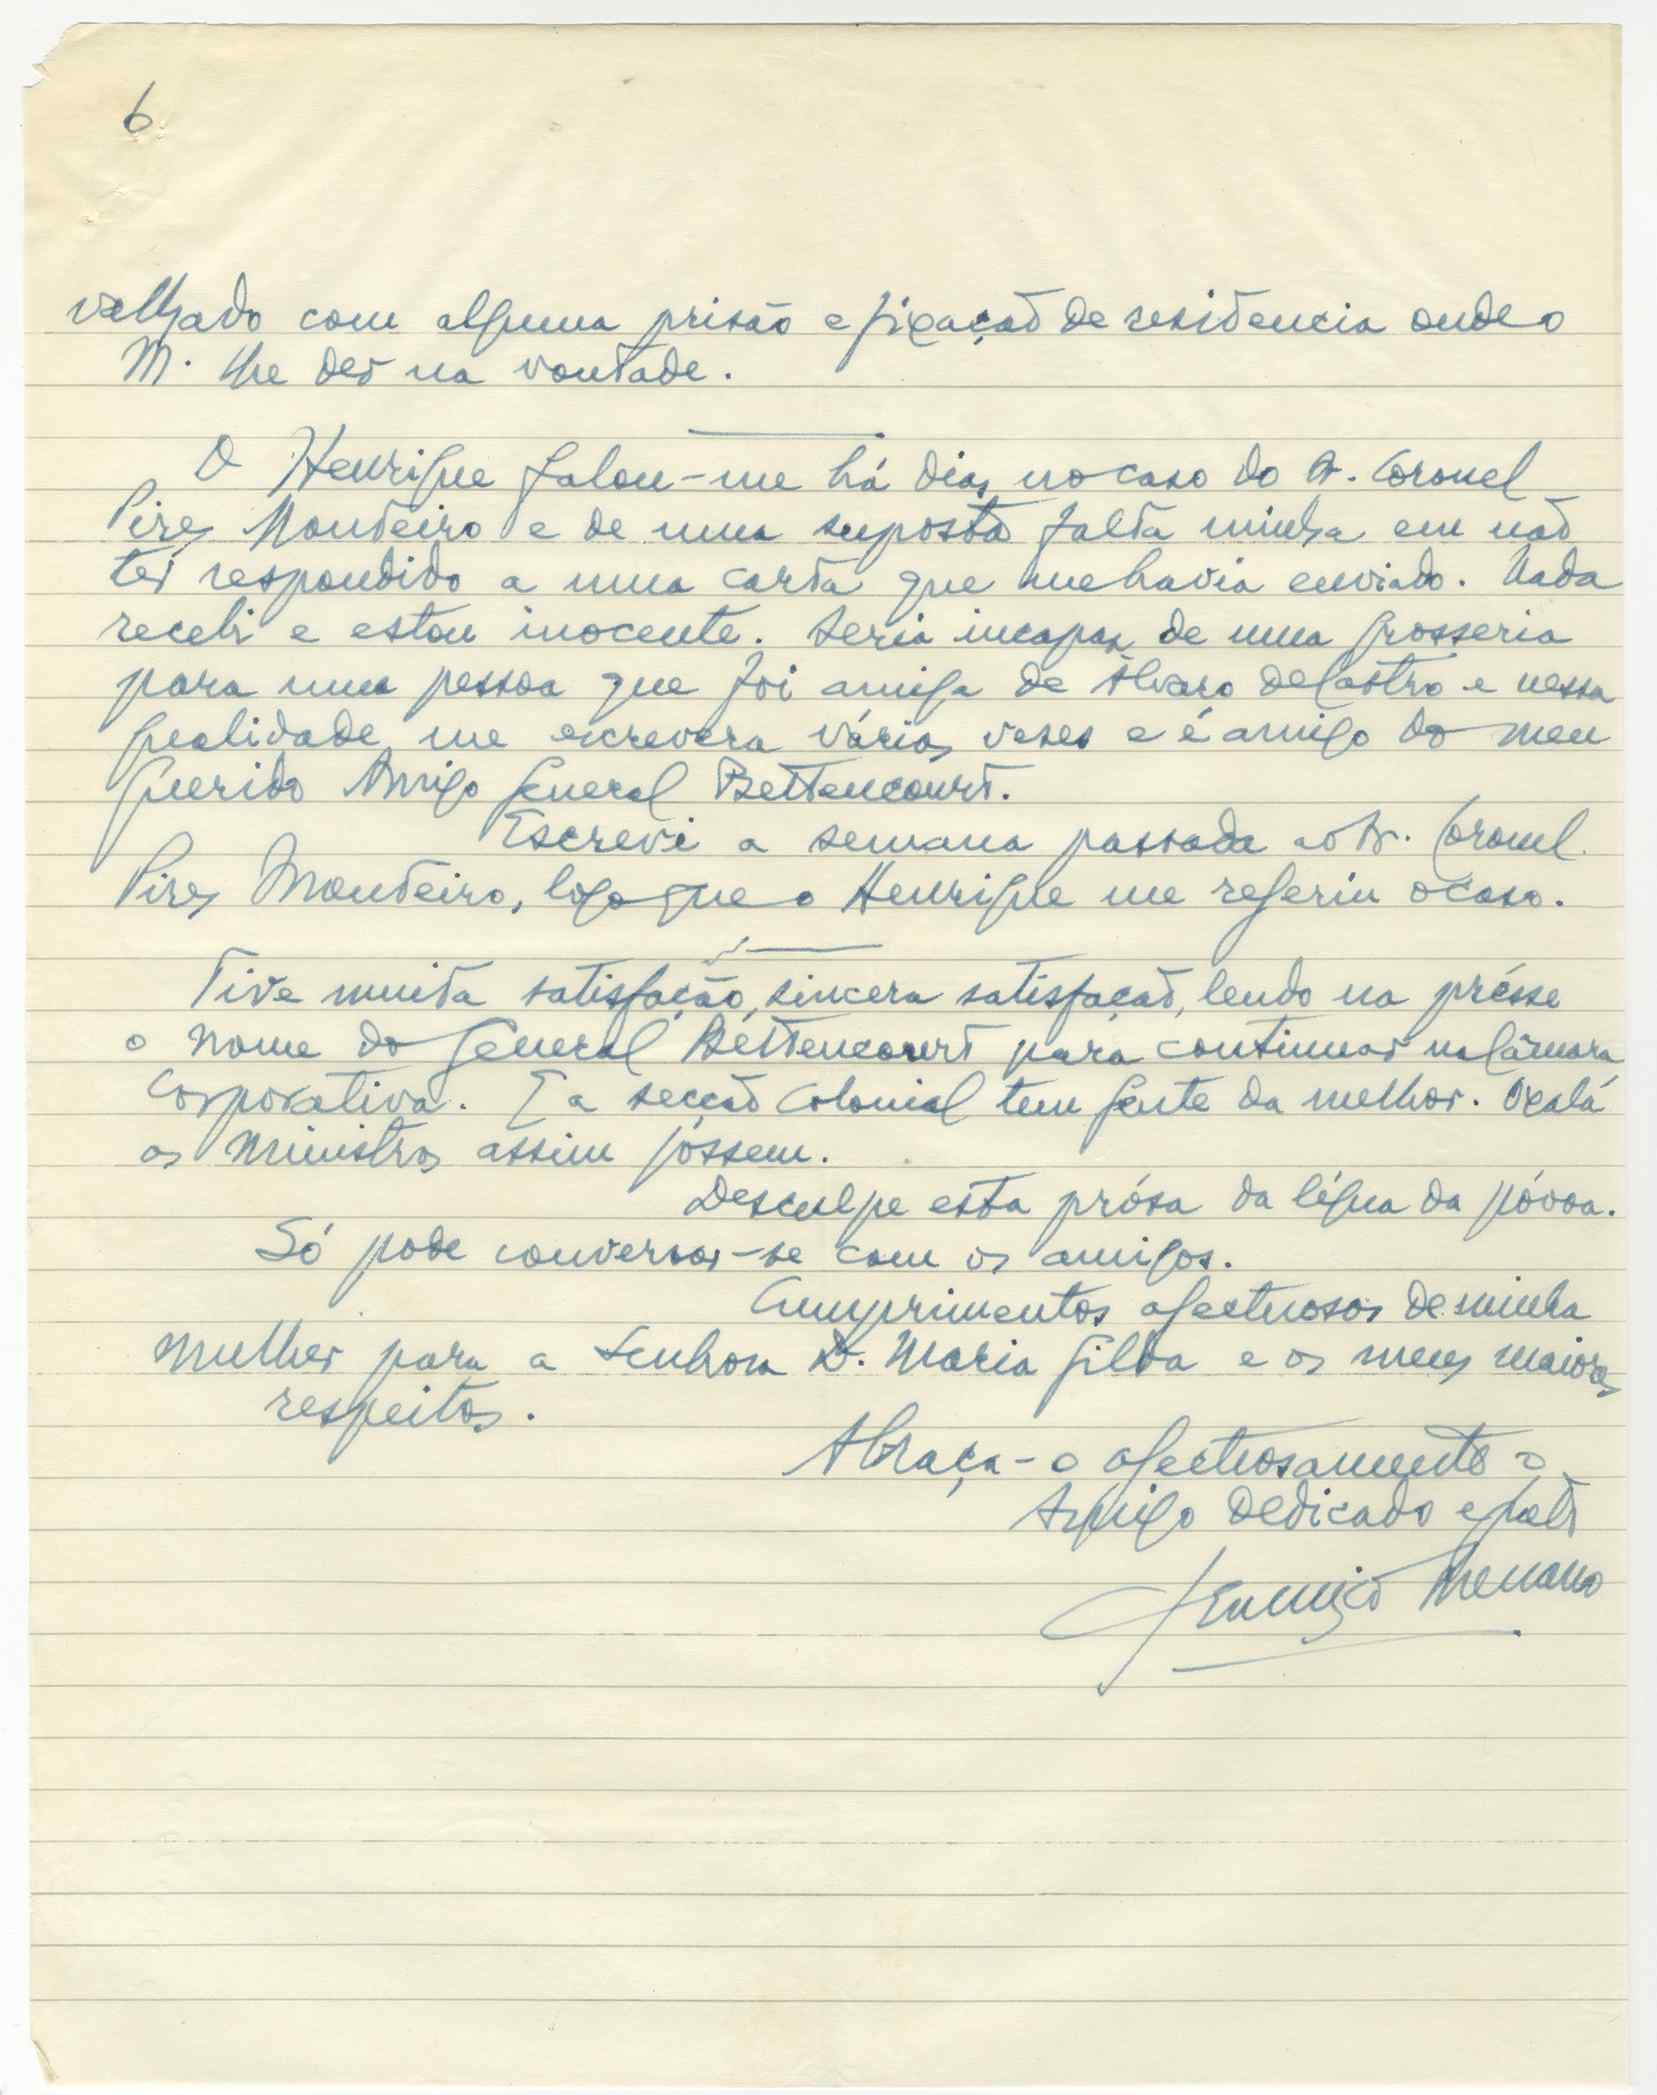 6
valhado com alguma prisão e fixação de residencia onde o
M. lhe der na vontade.
O Henrique falou-me há dias no caso do Sr. Coronel
Pires Monteiro e de uma suposta falta minha em não
ter respondido a uma carta que me havia enviado. Nada
recebi e estou inocente. Seria incapaz de uma grosseria
para uma pessoa que foi amiga de Álvaro de Castro e nessa
qualidade me escrevera várias veses e é amigo do meu
querido Amigo General Bettencourt.
Escrevi a semana passada ao Sr. Coronel
Pires Monteiro, logo que o Henrique me referiu o caso.
Tive muita satisfação, sincera satisfação, lendo na présse
o nome do General Bettencourt para continuar na Câmara
Corporativa. E a secção Colonial tem gente da melhor. Oxalá
os Ministros assim fôssem.
Desculpe esta prósa da légua da póvoa.
Só pode conversar-se com os amigos.
Cumprimentos afectuosos de minha
mulher para a Senhora D. Maria Gilda e os meus maiores
respeitos.
Abraça-o afectuosamente o
Amigo Dedicado e grato
Menano